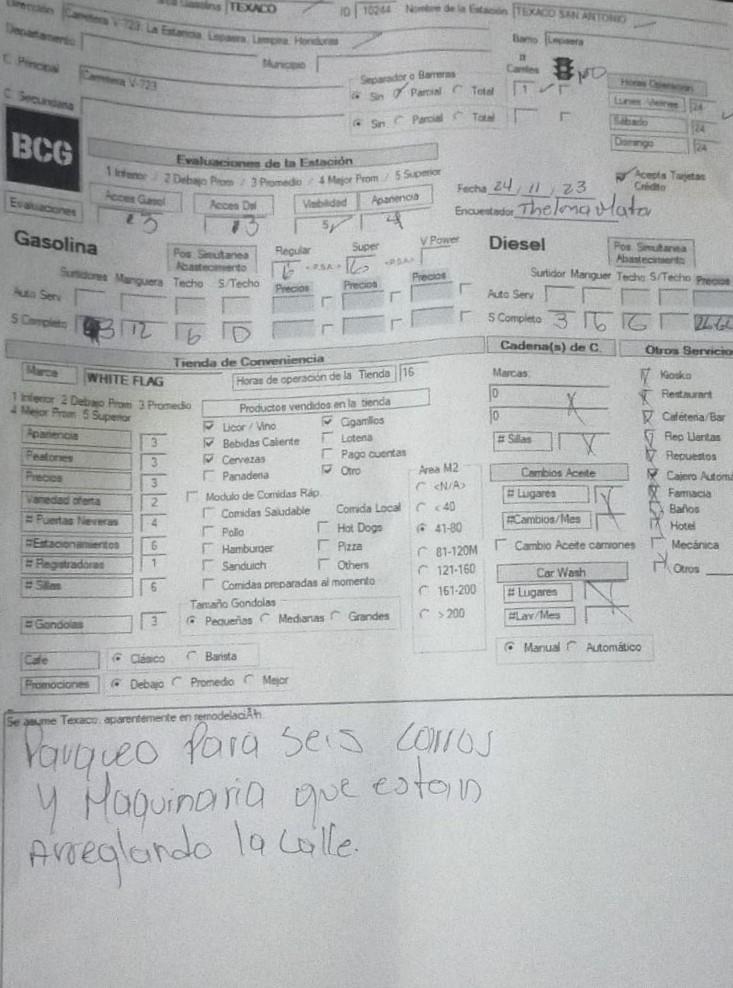 Dirección Carretera V-723, La Estancia, Lepaera, Lempira, Honduras Gasolina TEXACO ID 10244 Nombre de la Estación TEXACO SAN ANTONIO
Departamento Municipio Barrio Lepaera
C. Principal Carretera V-723 Separador o Barreras # Carriles NO Horas Operacion
Sin Parcial Total 1 Lunes Viernes 24
C. Secundaria Sin Parcial Total Sábado 24
Domingo 24
BCG
Evaluaciones de la Estación
1 Inferior / 2 Debajo Prom / 3 Promedio / 4 Mejor Prom / 5 Superior
Acepta Tarjetas Crédito
Evaluaciones Acces Gasol 3 Acces Dsl 3 Visibilidad 5 Apariencia 4
Fecha 24, 11, 23
Encuestador Thelma Mata
Gasolina Pos. Simultanea Abastecimiento Regular 6 Super 6 V Power
Surtidores Manguera Techo S/Techo Precios Precios Precios
Auto Serv
S Completo 3 12 6 0
Diesel Pos. Simultanea Abastecimiento
Surtidor Manguer Techo S/Techo Precios
Auto Serv
S Completo 3 6 6
Tienda de Conveniencia
Marca WHITE FLAG Horas de operación de la Tienda 16
1 Inferior 2 Debajo Prom 3 Promedio
4 Mejor Prom 5 Superior
Apariencia 3
Peatones 3
Precios 3
Variedad oferta 2
# Puertas Neveras 4
#Estacionamientos 6
# Registradoras 1
# Sillas 6
# Gondolas 3
Productos vendidos en la tienda
Licor / Vino Cigarrillos
Bebidas Caliente Loteria
Cervezas Pago cuentas
Panaderia Otro
Modulo de Comidas Ráp.
Comidas Saludable Comida Local
Pollo Hot Dogs
Hamburger Pizza
Sanduich Others
Comidas preparadas al momento
Tamaño Gondolas
Pequeñas Medianas Grandes
Area M2
<N/A>
< 40
41-80
81-120M
121-160
161-200
> 200
Cafe Clásico Barista
Promociones Debajo Promedio Mejor
Cadena(s) de C.
Marcas:
0
0
# Sillas
Cambios Aceite
# Lugares
#Cambios/Mes
Cambio Aceite camiones
Car Wash
# Lugares
#Lav/Mes
Manual Automático
Otros Servicio
Kiosko
Restaurant
Cafeteria/Bar
Rep Llantas
Repuestos
Cajero Automá
Farmacia
Baños
Hotel
Mecánica
Otros
Se asume Texaco, aparentemente en remodelaciÃh.
Parqueo para seis carros
y Maquinaria que estan
Arreglando la calle.